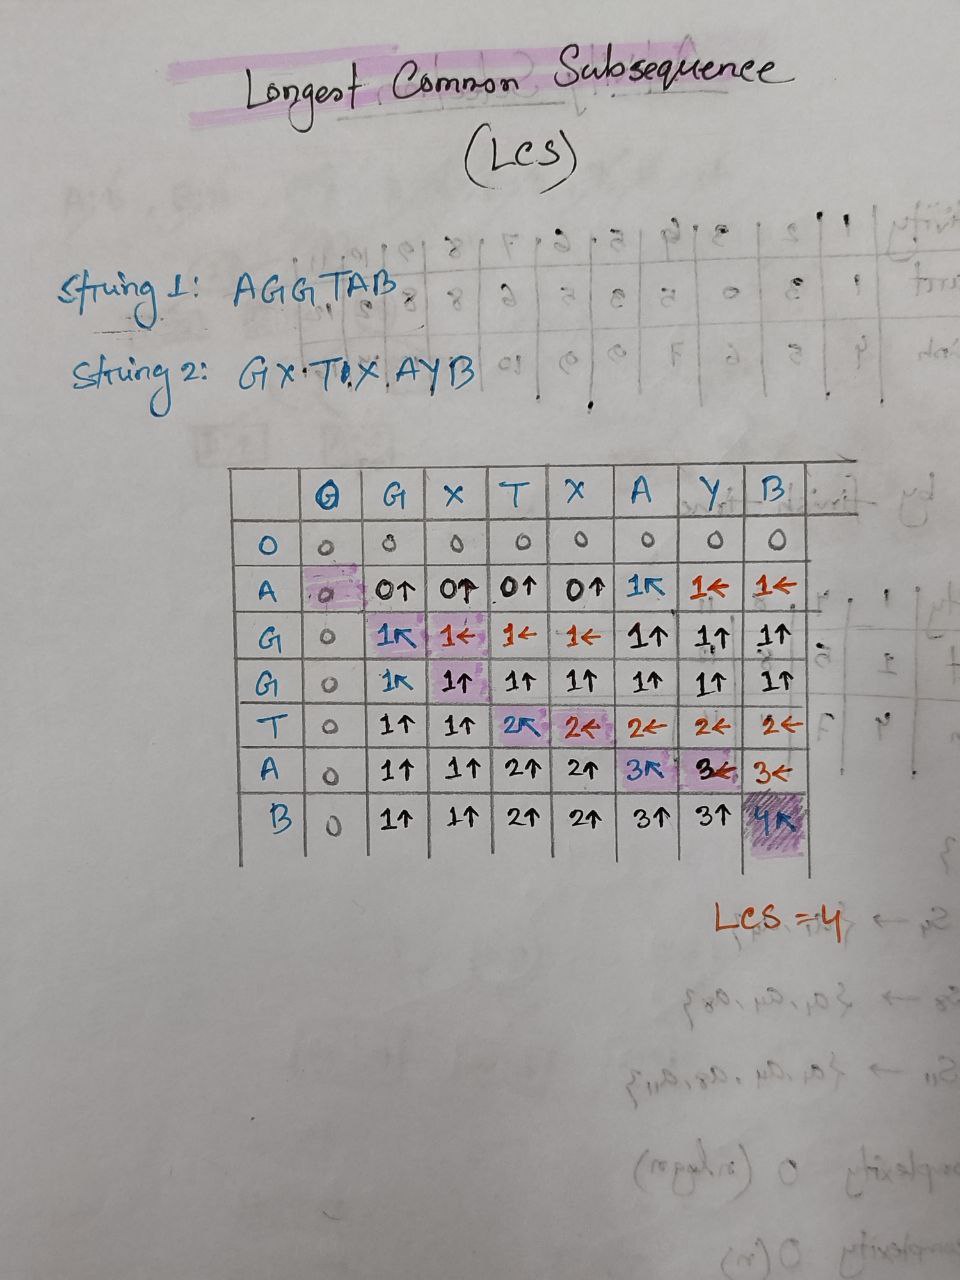 Longest Common Subsequence
(LCS)
String 1: AGGTAB
String 2: GXTXAYB
0 G X T X A Y B
0 0 0 0 0 0 0 0 0
A 0 0↑ 0↑ 0↑ 0↑ 1↖ 1← 1←
G 0 1↖ 1← 1← 1← 1↑ 1↑ 1↑
G 0 1↖ 1↑ 1↑ 1↑ 1↑ 1↑ 1↑
T 0 1↑ 1↑ 2↖ 2← 2← 2← 2←
A 0 1↑ 1↑ 2↑ 2↑ 3↖ 3← 3←
B 0 1↑ 1↑ 2↑ 2↑ 3↑ 3↑ 4↖
LCS = 4